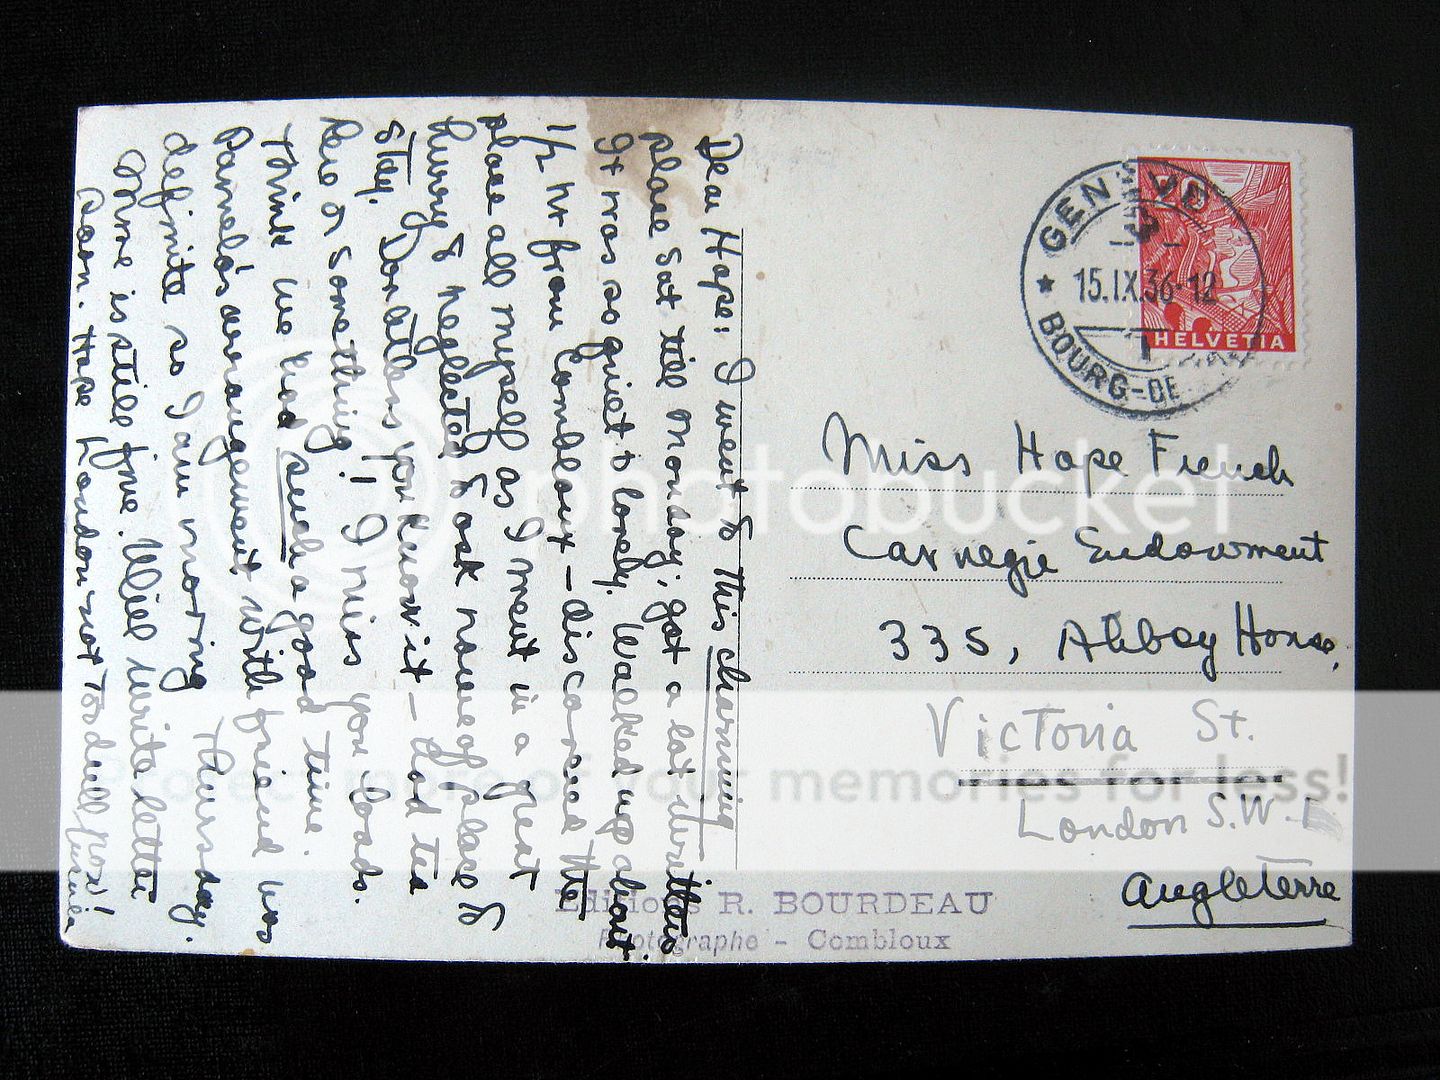 Dear Hope: I went to this charming
place Sat till Monday; got a lot written
It was so quiet & lovely. Walked up about
1/2 hr from Combloux – discovered the
place all myself as I went in a great
hurry & neglected to ask name of place to
stay. Donothers you know it – had tea
there or something! I miss you loads.
Think we had such a good time.
Pamela's arrangement with friend was
definite so I am moving Thursday.
Anne is still fine. Will write letter
soon. Hope London not too dull, now!
GENÈVE
15.IX.36-12
BOURG-DE
20
HELVETIA
Miss Hope French
Carnegie Endowment
335, Abbey House,
Victoria St.
London S.W.1
Angleterre
Editions R. BOURDEAU
Photographe - Combloux
photobucket
Protect more of your memories for less!